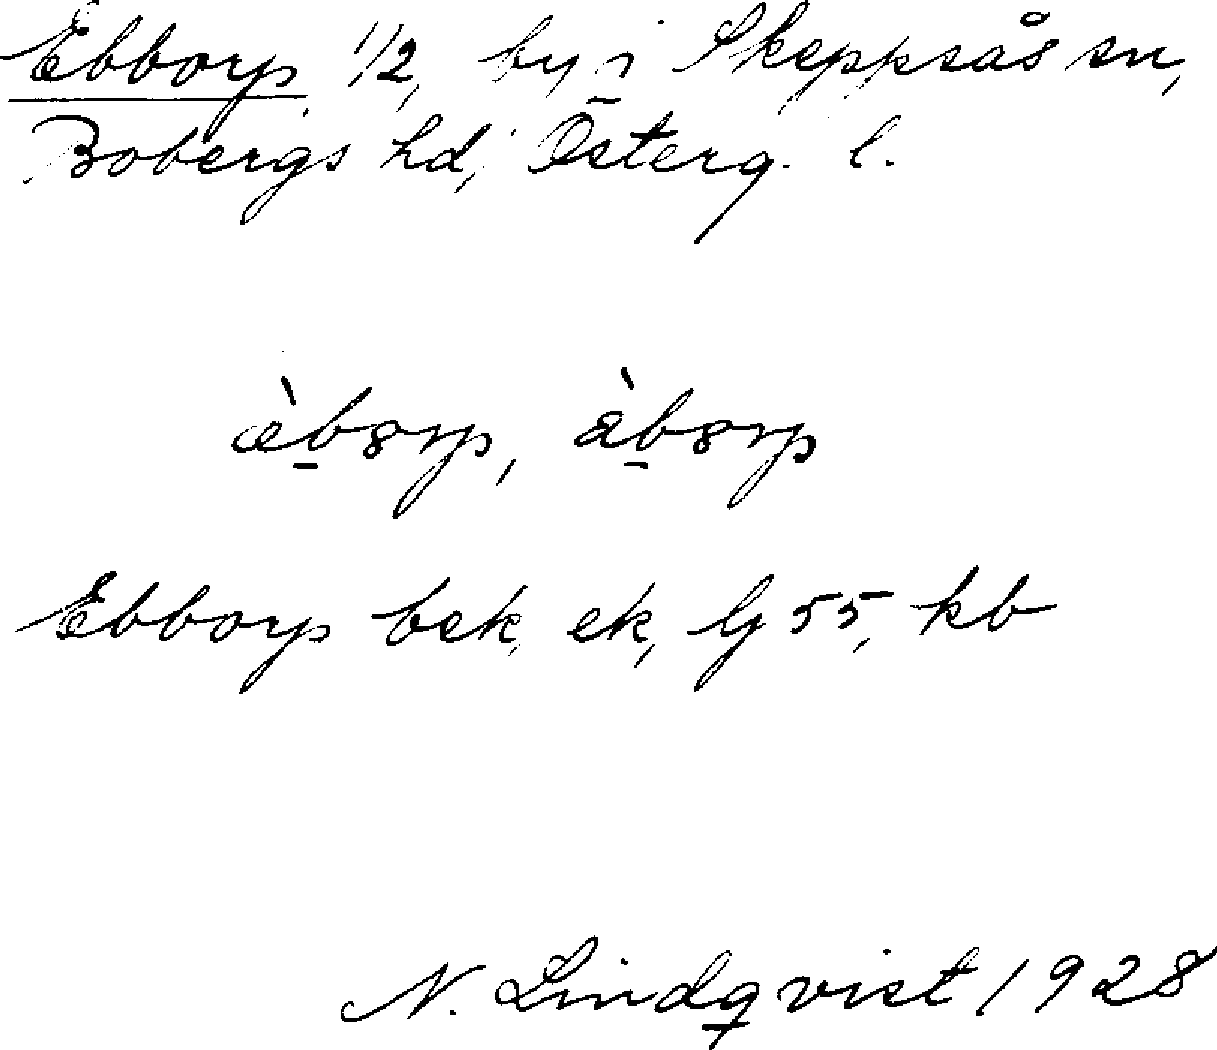 Ebborp 1/2, by i Skeppsås sn,
Bobergs hd, Österg. l.
Ebborp bek, ek, Gj 55, kb
N. Lindqvist 1928